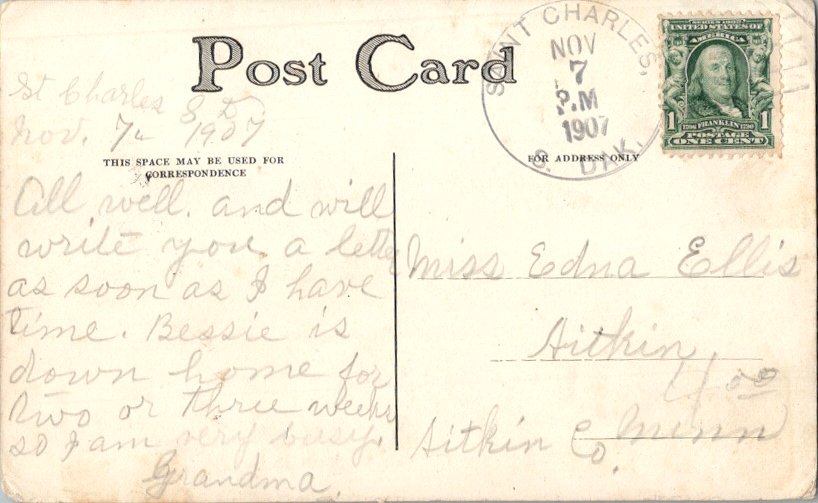 Post Card
SAINT CHARLES,
NOV
7
P.M
1907
S. DAK.
SERIES 1902
UNITED STATES OF
AMERICA
1706 FRANKLIN 1790
1 1
POSTAGE
ONE CENT
St Charles S D
Nov. 7th 1907
THIS SPACE MAY BE USED FOR
CORRESPONDENCE
FOR ADDRESS ONLY
All well. and will
write you a letter
as soon as I have
time. Bessie is
down home for
two or three weeks
so I am very busy.
Grandma.
Miss Edna Ellis
Aitkin
4.00
Aitkin Co. Minn